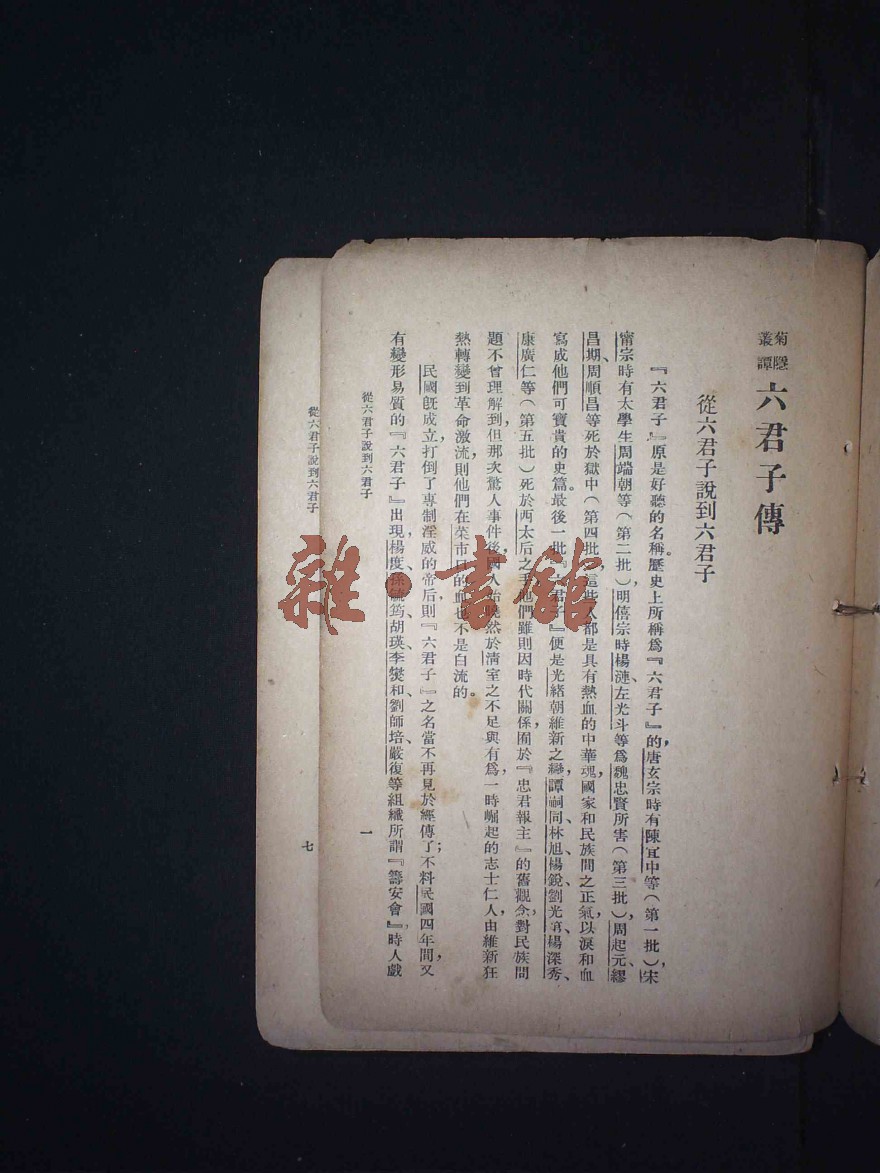 菊隱叢譚
六君子傳
從六君子說到六君子
『六君子』原是好聽的名稱。歷史上所稱爲『六君子』的，唐玄宗時有陳宜中等（第一批），宋
甯宗時有太學生周端朝等（第二批），明僖宗時楊漣、左光斗等爲魏忠賢所害（第三批），周起元、繆
昌期、周順昌等死於獄中（第四批），這些人都是具有熱血的中華魂，國家和民族間之正氣，以淚和血
寫成他們可寶貴的史篇。最後一批『六君子』便是光緒朝維新之戀，譚嗣同、林旭、楊銳、劉光第、楊深秀、
康廣仁等（第五批）死於西太后之手，他們雖則因時代關係囿於『忠君報主』的舊觀念，對民族問
題不曾理解到，但那次驚人事件後，國人始曉然於清室之不足與有爲，一時崛起的志士仁人，由維新狂
熱轉變到革命激流，則他們在菜市口的血也不是白流的。
民國旣成立，打倒了專制淫威的帝后，則『六君子』之名當不再見於經傳了；不料民國四年間，又
有變形易質的『六君子』出現，楊度、孫毓筠、胡瑛、李燮和、劉師培、嚴復等組織所謂『籌安會』，時人戲
從六君子說到六君子
一
從六君子說到六君子
七
雜·書館